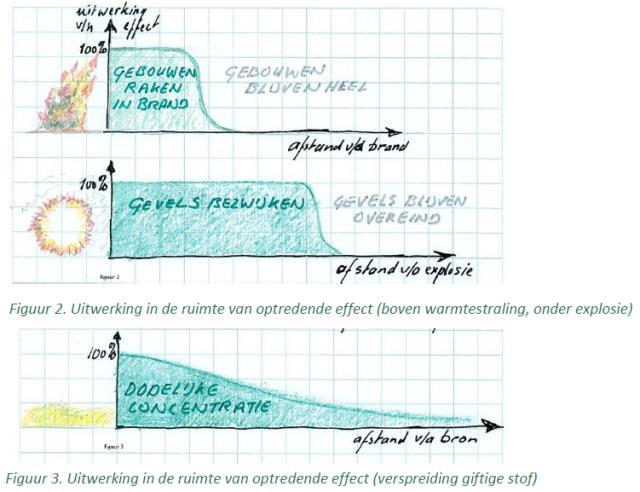 uitwerking
v/h effect
100%
GEBOUWEN
RAKEN
IN BRAND
GEBOUWEN
BLIJVEN HEEL
afstand v/d brand
100%
GEVELS BEZWIJKEN
GEVELS BLIJVEN
OVEREIND
afstand v/d explosie
Figuur 2
Figuur 2. Uitwerking in de ruimte van optredende effect (boven warmtestraling, onder explosie)
100%
DODELIJKE
CONCENTRATIE
afstand v/a bron
Figuur 3
Figuur 3. Uitwerking in de ruimte van optredende effect (verspreiding giftige stof)